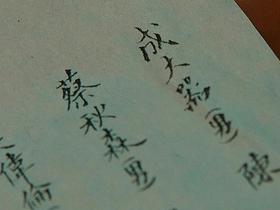 陳
成大器(男)
蔡秋森(男)
偉倫